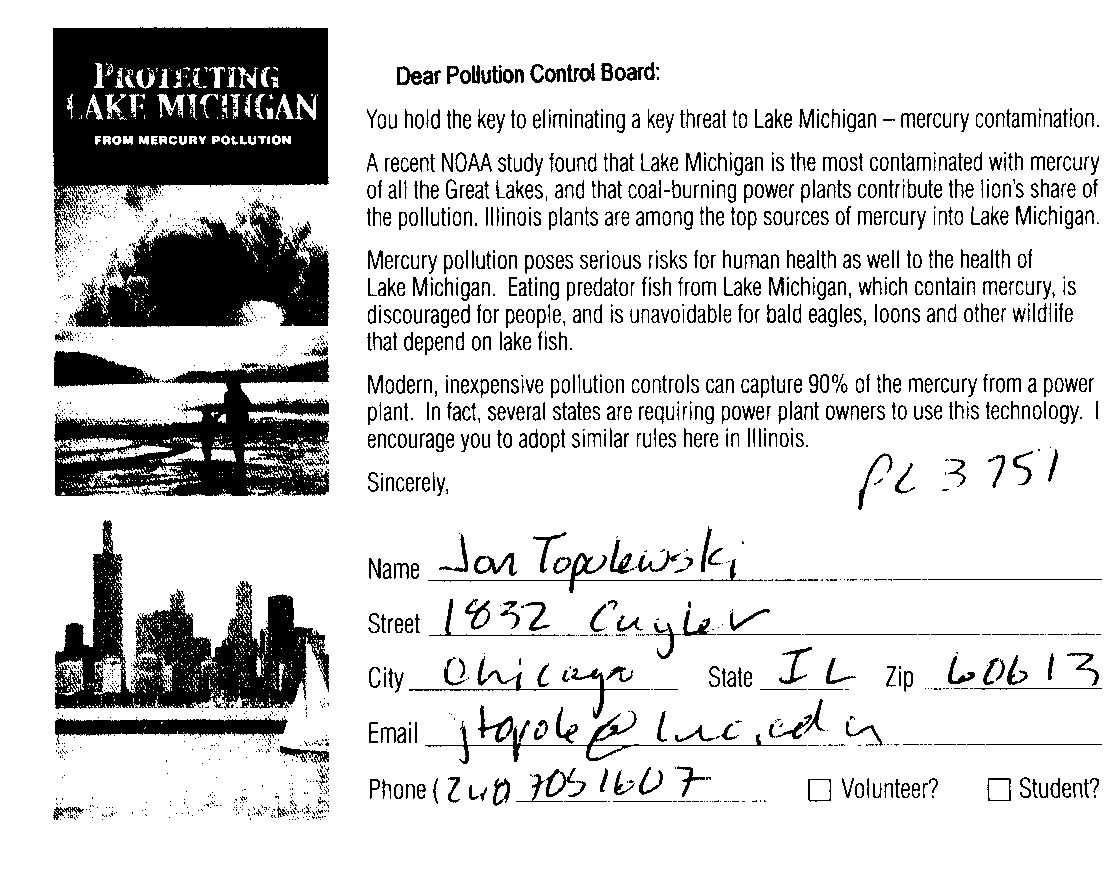 PROTECTING
LAKE MICHIGAN
FROM MERCURY POLLUTION
Dear Pollution Control Board:
You hold the key to eliminating a key threat to Lake Michigan – mercury contamination.
A recent NOAA study found that Lake Michigan is the most contaminated with mercury
of all the Great Lakes, and that coal-burning power plants contribute the lion's share of
the pollution. Illinois plants are among the top sources of mercury into Lake Michigan.
Mercury pollution poses serious risks for human health as well to the health of
Lake Michigan. Eating predator fish from Lake Michigan, which contain mercury, is
discouraged for people, and is unavoidable for bald eagles, loons and other wildlife
that depend on lake fish.
Modern, inexpensive pollution controls can capture 90% of the mercury from a power
plant. In fact, several states are requiring power plant owners to use this technology. I
encourage you to adopt similar rules here in Illinois.
Sincerely,
PC 3751
Name Jon Topolewski
Street 1832 Cuyler
City Chicago State IL Zip 60613
Email jtopole@luc.edu
Phone ( ) 705 1607 Volunteer? Student?